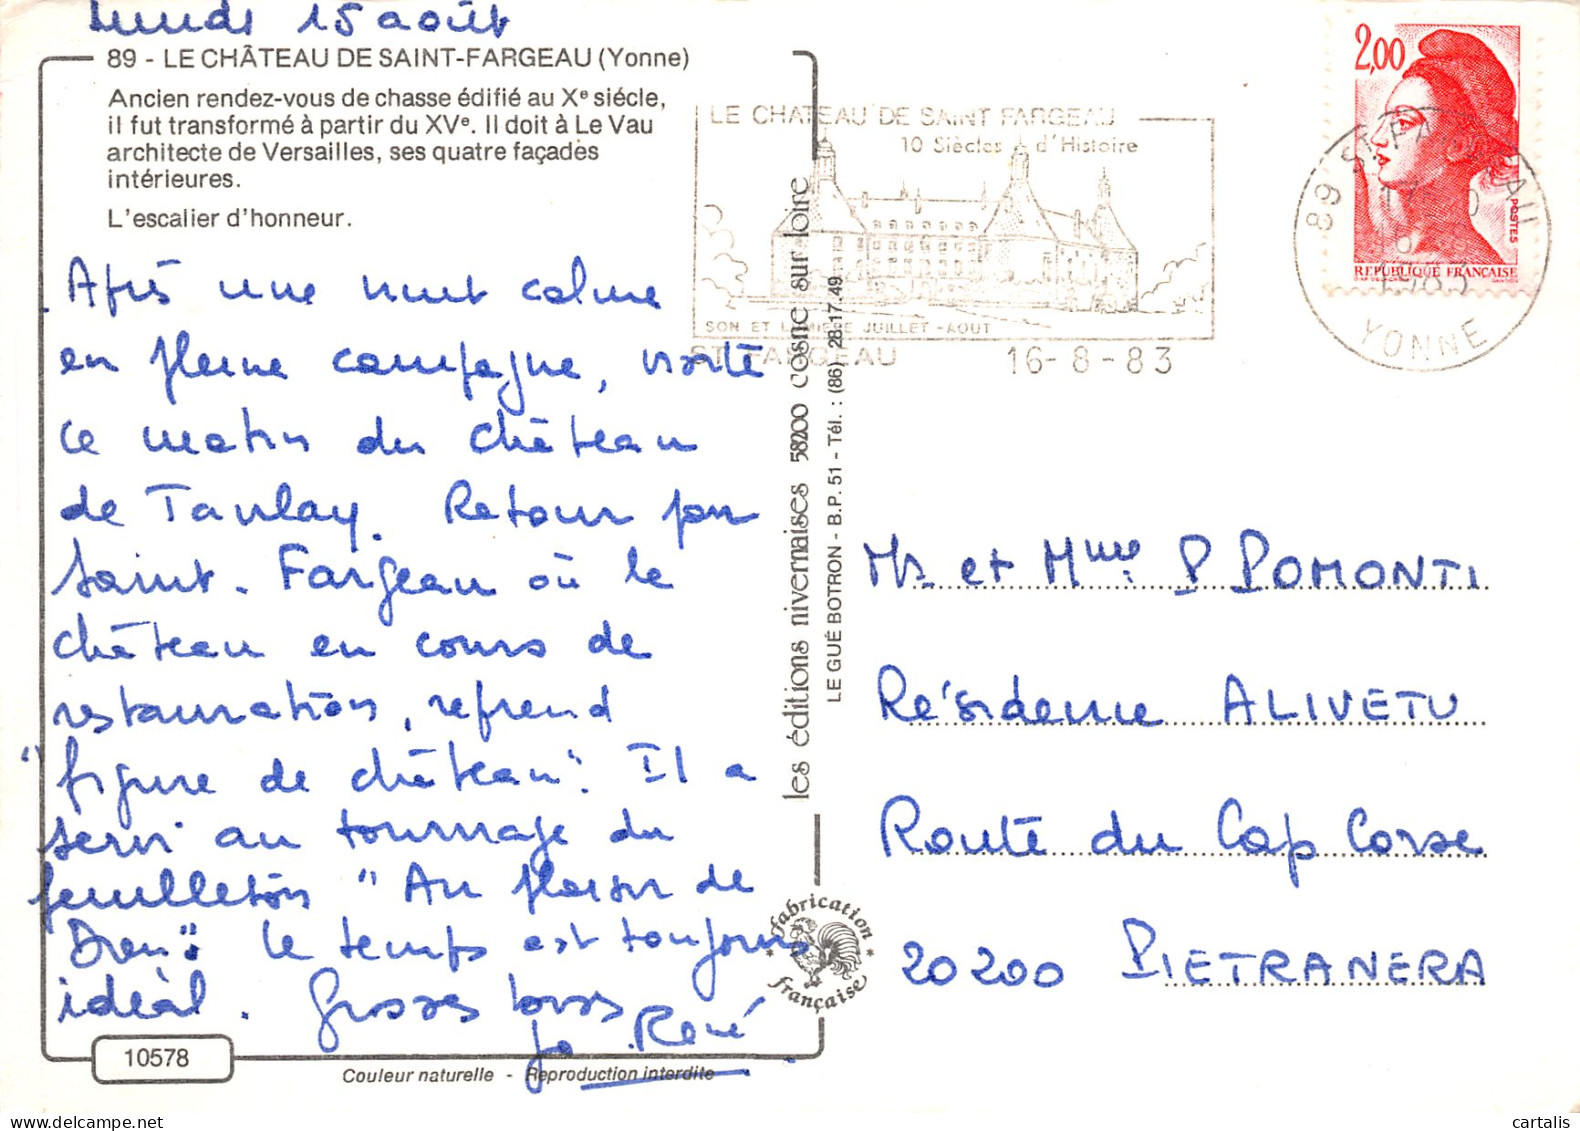 Lundi 15 août
89 - LE CHÂTEAU DE SAINT-FARGEAU (Yonne)
Ancien rendez-vous de chasse édifié au Xe siécle,
il fut transformé à partir du XVe. Il doit à Le Vau
architecte de Versailles, ses quatre façades
intérieures.
L'escalier d'honneur.
Après une nuit calme
en pleine campagne, visite
ce matin du château
de Tanlay. Retour par
Saint-Fargeau où le
château en cours de
restauration, reprend
"figure de château". Il a
servi au tournage du
feuilleton "Au plaisir de
Dieu". Le temps est toujours
idéal. Grosses bises
Jo René
10578
Couleur naturelle - Reproduction interdite
les éditions nivernaises 58200 cosne sur loire
LE GUÉ BOTRON - B.P. 51 - Tél. : (86) 28.17.49
fabrication française
LE CHATEAU DE SAINT FARGEAU
10 Siècles d'Histoire
SON ET LUMIERE JUILLET-AOUT
ST FARGEAU 16-8-83
2,00
POSTES
REPUBLIQUE FRANÇAISE
89 ST FARGEAU
1983
YONNE
Mr et Mme P POMONTI
Résidence ALIVETU
Route du Cap Corse
20200 PIETRANERA
cartalis